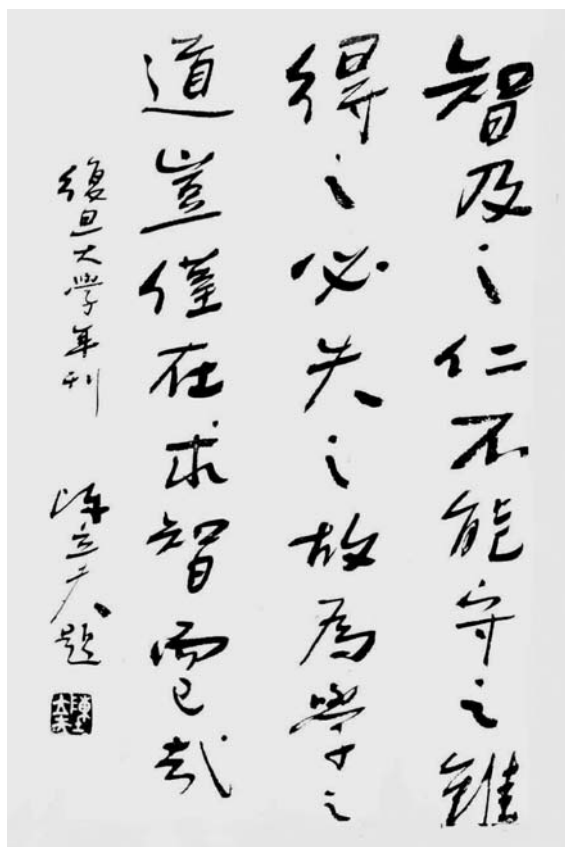 智及之仁不能守之雖
得之必失之故爲學之
道豈僅在求智而已哉
復旦大學年刊
陳立夫題
陳立夫